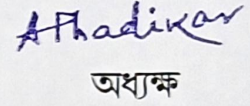 AAhadikar
অধ্যক্ষ